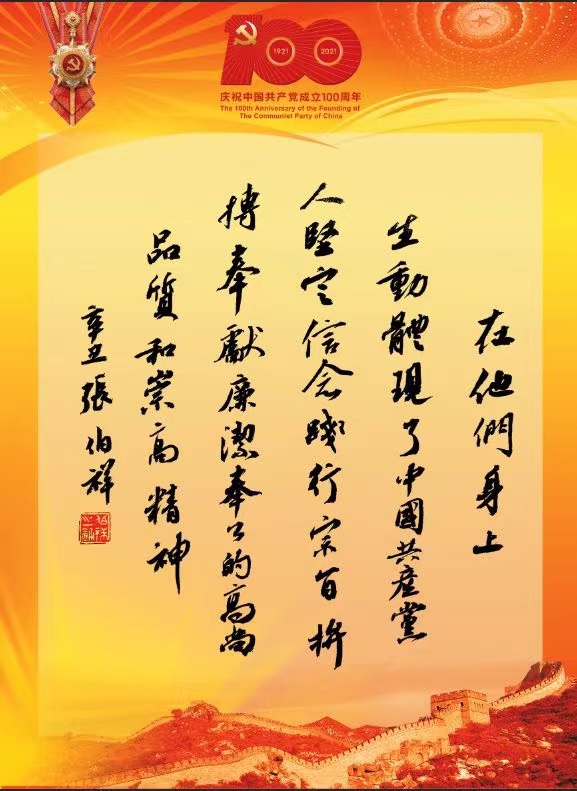 1921
2021
庆祝中国共产党成立100周年
The 100th Anniversary of the Founding of
The Communist Party of China
在他們身上
生動體現了中國共產黨
人堅定信念踐行宗旨拚
搏奉獻廉潔奉公的高尚
品質和崇高精神
辛丑張伯祥